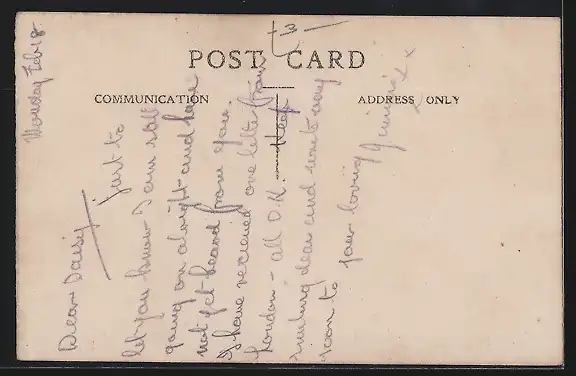 POST CARD
COMMUNICATION
ADDRESS ONLY
Monday Feb 18
Dear Daisy
just to
let you know I am still
going on alright and have
not yet heard from you.
I have recieved one letter from
London - all O.K. Keep
smiling dear and write away
soon to your loving
x x